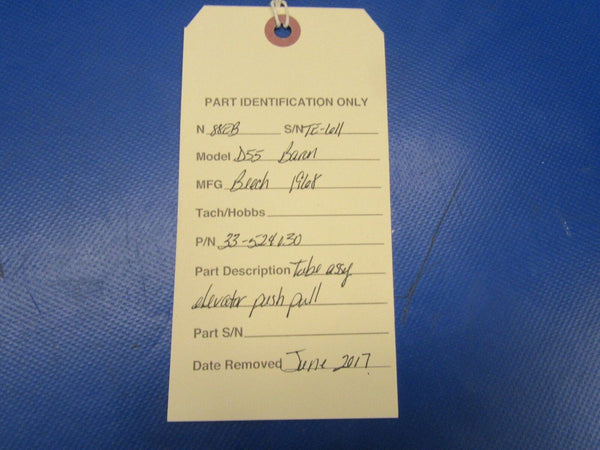 PART IDENTIFICATION ONLY
N 88EB S/N TE-611
Model D55 Baron
MFG Beech 1968
Tach/Hobbs
P/N 33-524030
Part Description Tube assy
elevator push pull
Part S/N
Date Removed June 2017